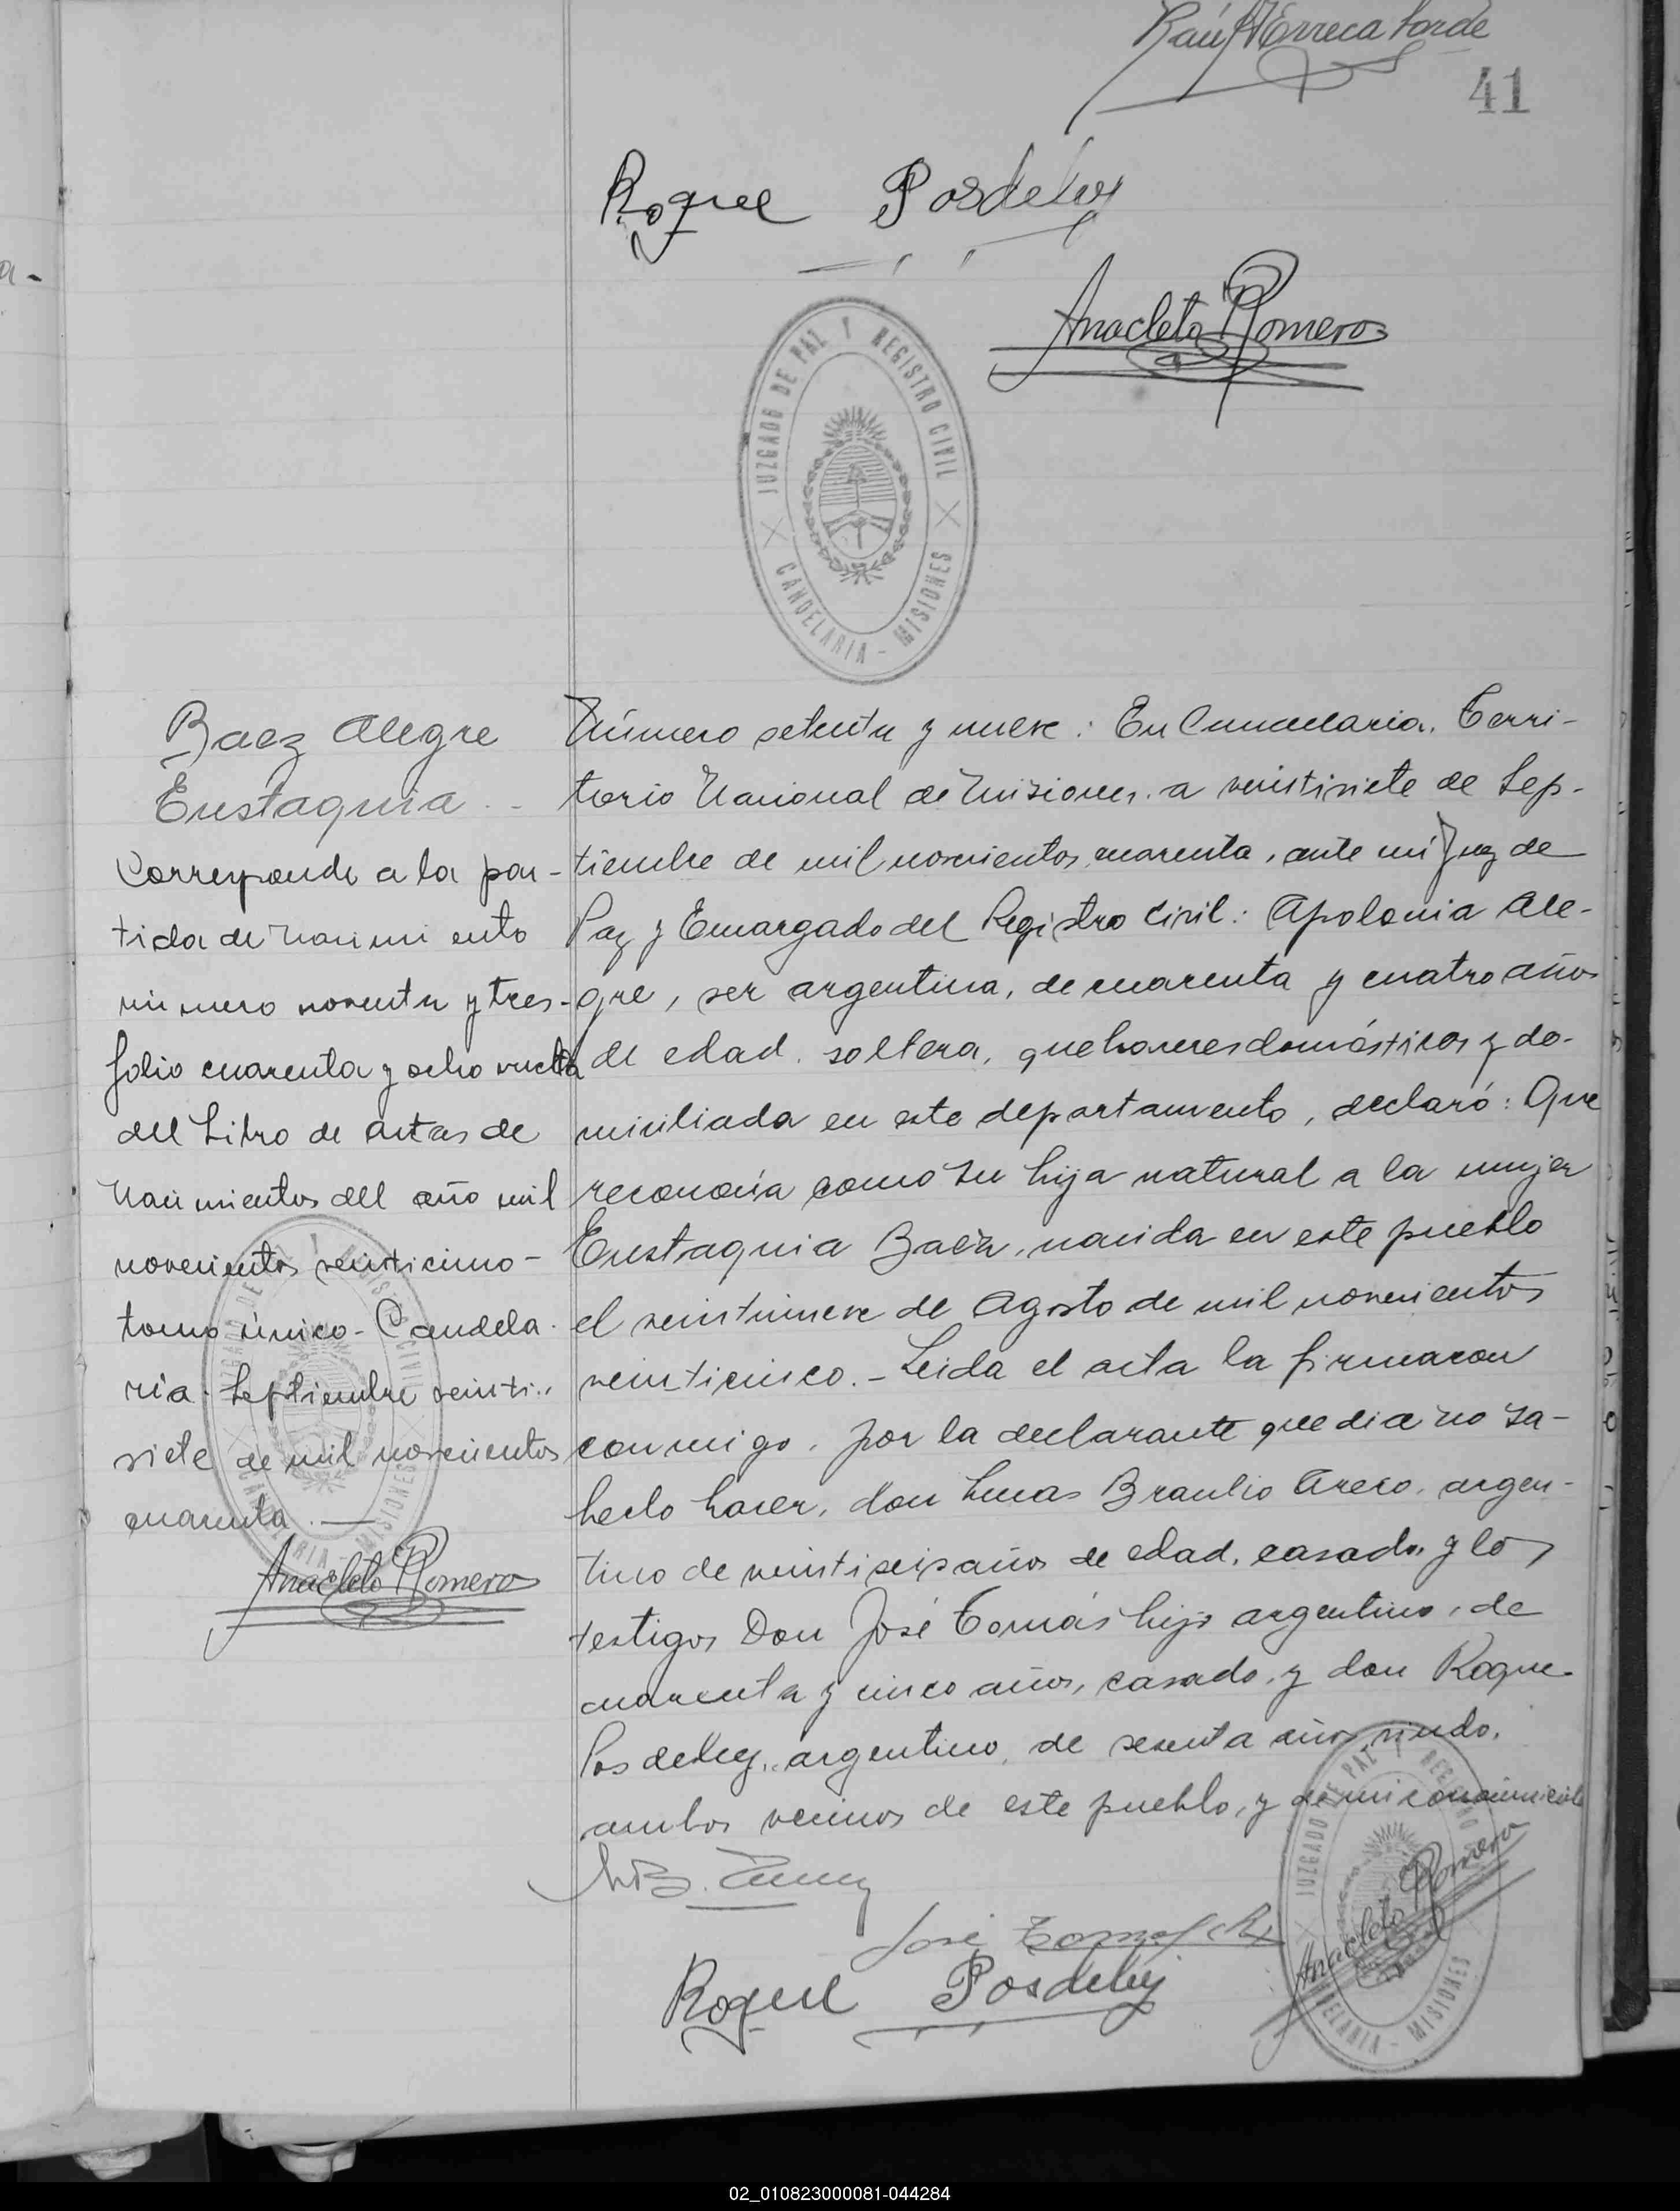 Raúl A Errecaborde
41
Roque Posdeley
Anacleto Romero
JUZGADO DE PAZ Y REGISTRO CIVIL
CANDELARIA - MISIONES
Baez Alegre
Eustaquia
Corresponde a la par-
tida de nacimiento
número noventa y tres-
folio cuarenta y ocho vuelta
del Libro de actas de
Nacimientos del año mil
novecientos veinticinco-
tomo único- Candela-
ria- Septiembre veinti-
siete de mil novecientos
cuarenta.—
Anacleto Romero
Número setenta y nueve: En Candelaria, Terri-
torio Nacional de Misiones, a veintisiete de Sep-
tiembre de mil novecientos cuarenta, ante mí Juez de
Paz y Encargado del Registro Civil: Apolonia Ale-
gre, ser argentina, de cuarenta y cuatro años
de edad, soltera, quehaceres domésticos y do-
miciliada en este departamento, declaró: Que
reconocía como su hija natural a la mujer
Eustaquia Baez, nacida en este pueblo
el veintinueve de Agosto de mil novecientos
veinticinco.- Leida el acta la firmaron
conmigo, por la declarante que dice no sa-
berlo hacer, don Lucas Braulio Areco, argen-
tino de veintiseis años de edad, casado, y los
testigos Don José Tomás hijo argentino, de
cuarenta y cinco años, casado, y don Roque
Posdeley, argentino, de sesenta años, viudo,
ambos vecinos de este pueblo, y de mi conocimiento
José Tomas
Roque Posdeley
Anacleto Romero
JUZGADO DE PAZ Y REGISTRO
CANDELARIA - MISIONES
02_010823000081-044284